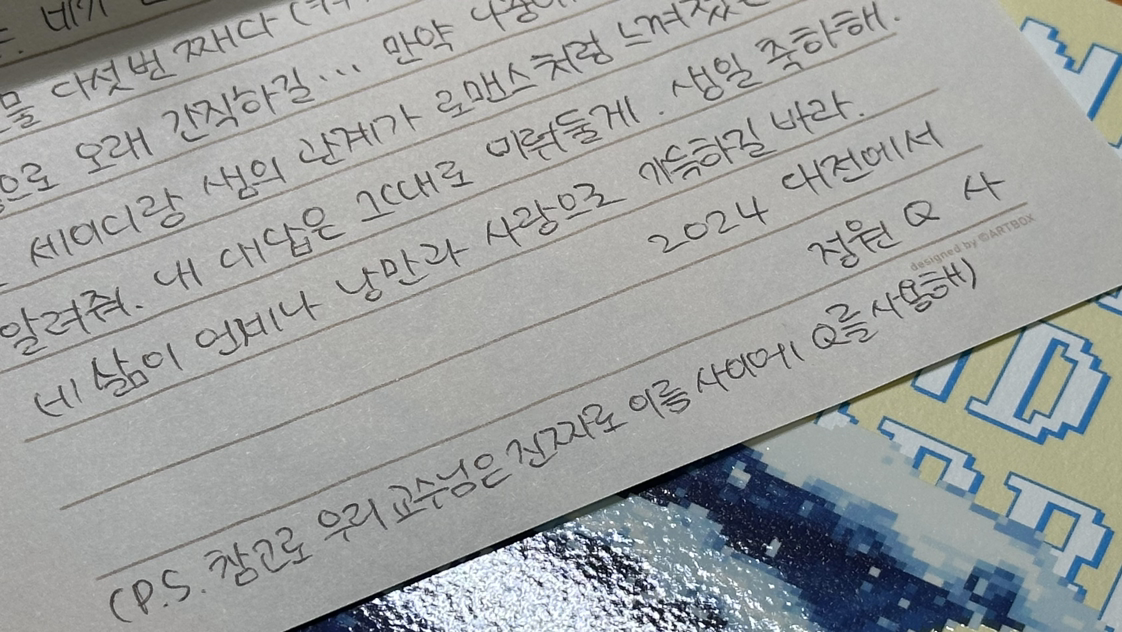 다섯 번 째다
으로 오래 간직하길... 만약
세이디랑 샘의 관계가 로맨스처럼 느껴졌
알려줘. 내 대답은 그대로 미뤄둘게. 생일 축하해.
네 삶이 언제나 낭만과 사랑으로 가득하길 바라.
2024 대전에서
정원 Q 사
designed by ©ARTBOX
(P.S. 참고로 우리 교수님은 진짜로 이름 사이에 Q를 사용해)